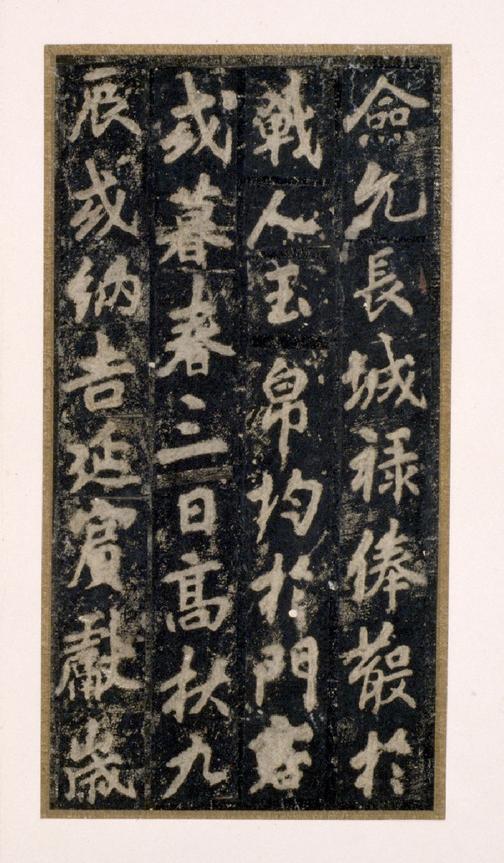 僉允長城祿俸散於
戰人玉帛均於門客
或暮春三日高秋九
辰或納吉延賓獻歲